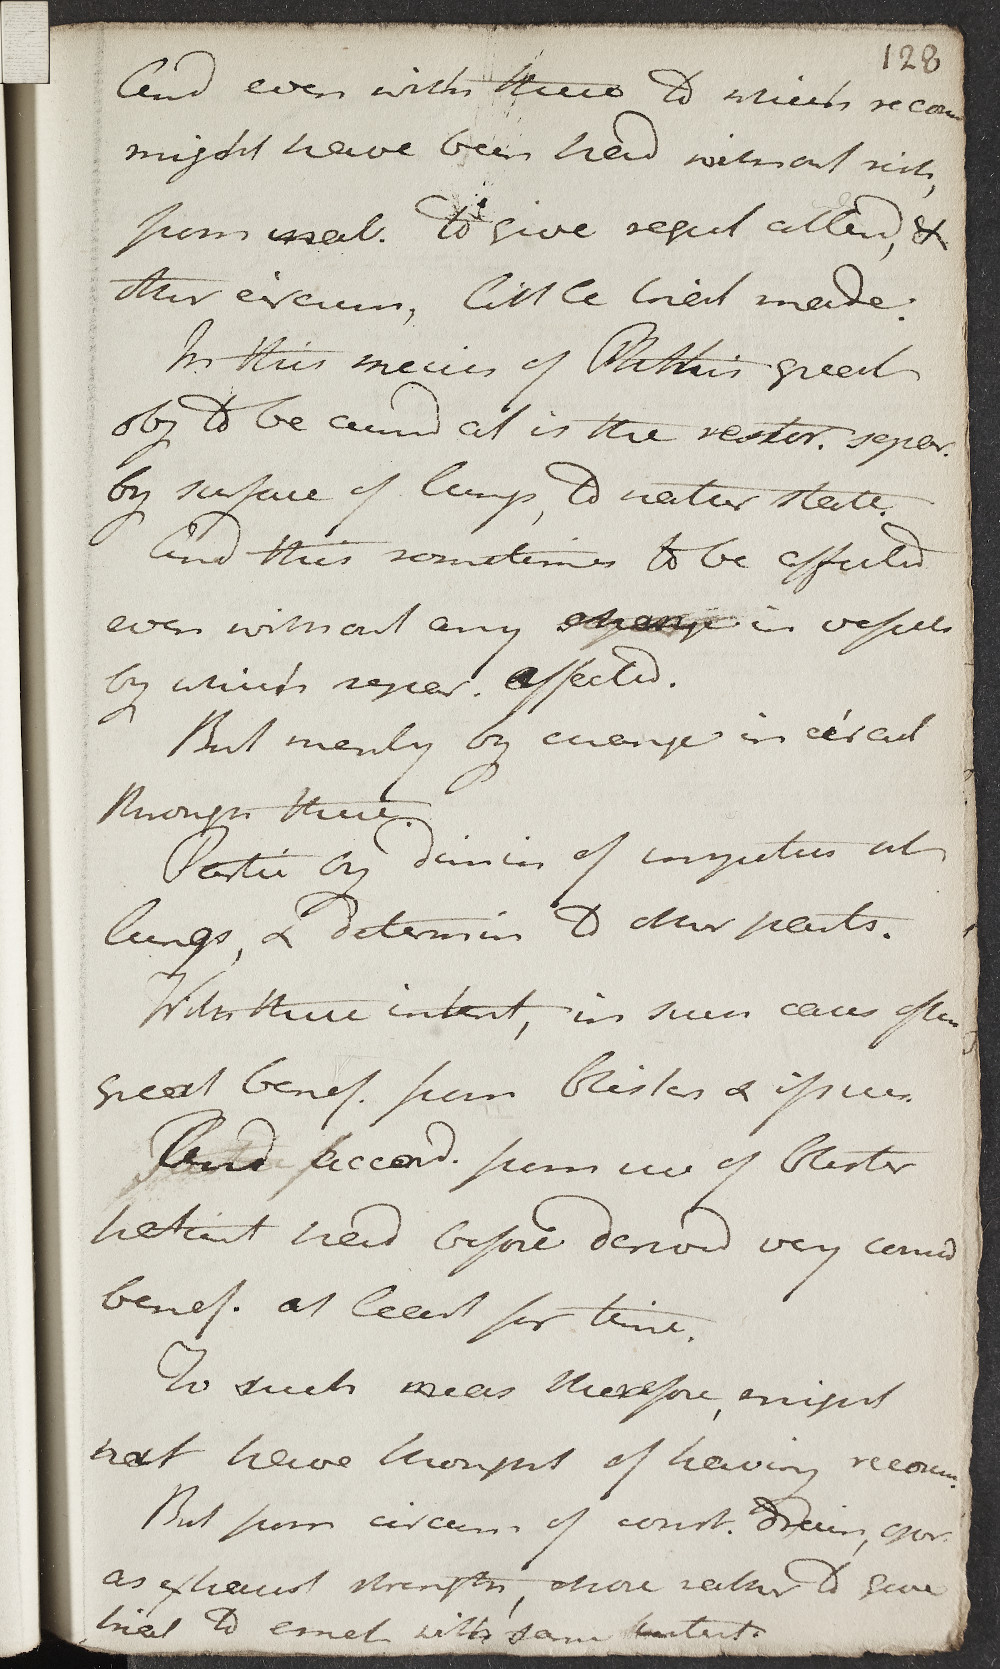 128
And even with these to which recour
might have been had without risk,
from inab. to give regul attend, &
other circum, little trial made.
In this species of Phthisis great
obj to be aimd at is the restor. separ.
by surface of lungs, to natur state.
And this sometimes to be effected
even without any change in vessels
by which separ. affected.
But merely by change in circul
through these.
Partic by dimin of impetus at
lungs, & determin to other parts.
With these intent, in such cases often
great benef. from blisters & issues.
And accord. from use of blister
patient had before derived very consid
benef. at least for time.
To such meas therefore, might
not have thought of having recour.
But from circum of const. drain, oper.
as exhaust strength, chose rather to give
trial to emet with same intent.